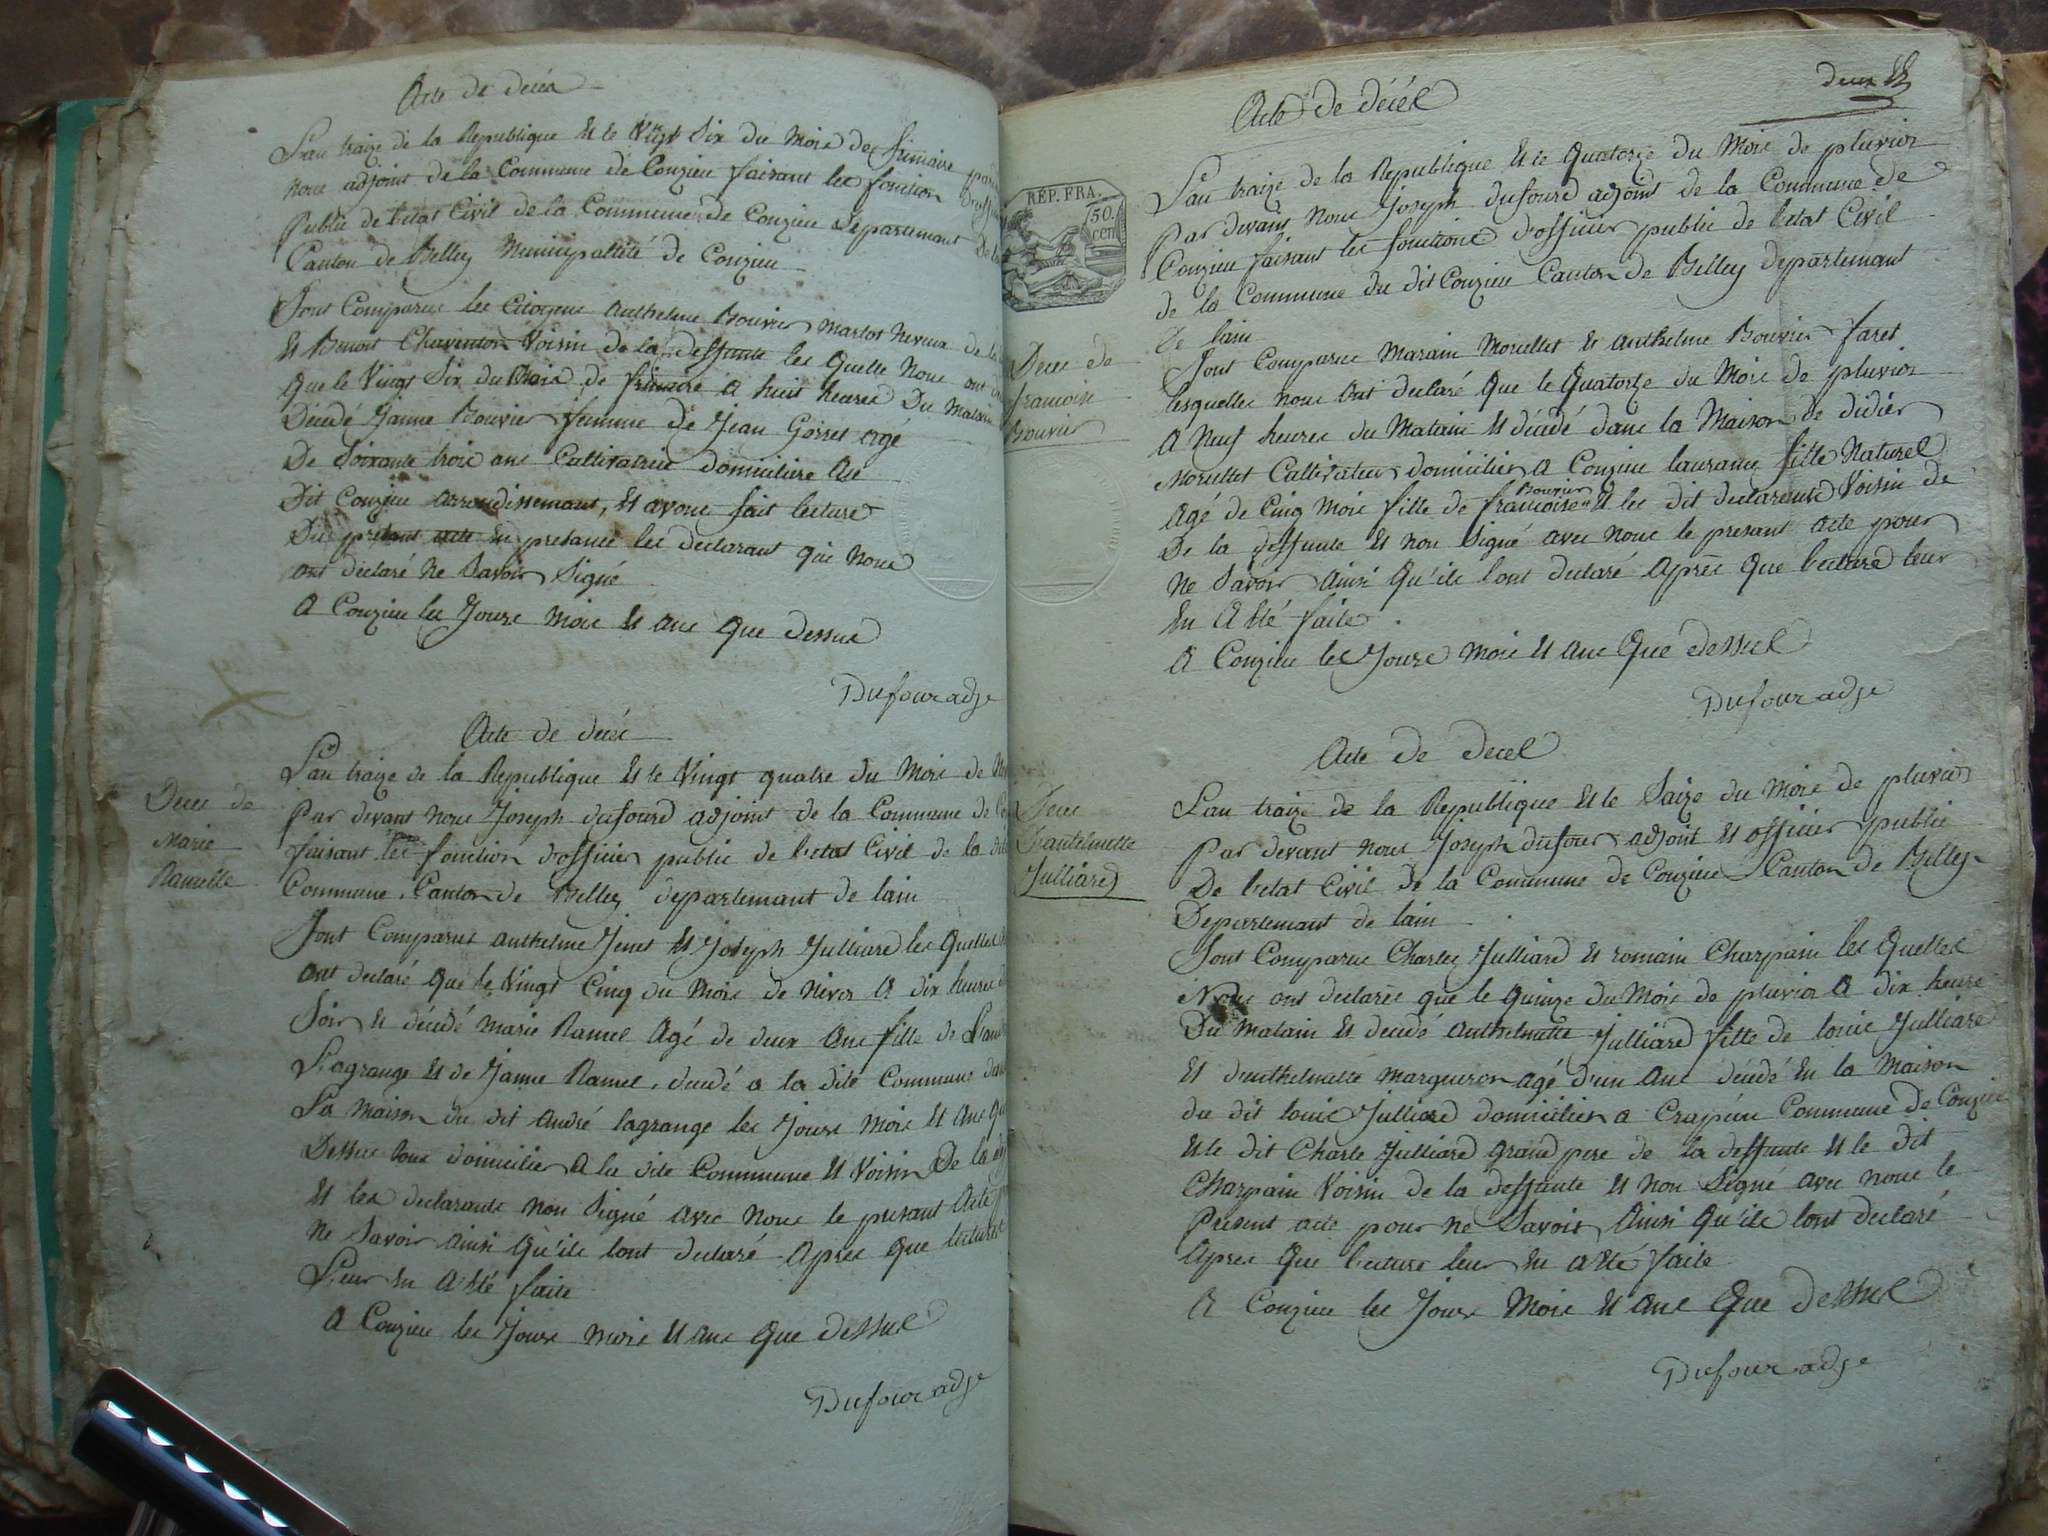 Acte de décés
L'an traize de la Republique Et le Vingt Six du Mois de frimaire
nous adjoint de la Commune de Conzieu faisant les fonction
Public de l'etat Civil de la Commune de Conzieu Departemant
Canton de Belley Municipalité de Conzieu
Sont Comparus les Citoyens Anthelme Bouvier Marlot Neveux de
Et Benoit Charinton Voisin de la deffunte les Quelle Nous ont
Que le Vingt Six du Mois de frimaire a huit heures Du Matain
Decédé Janne Bouvier femme de Jean Gorret agé
De Soixante trois ans Cultivatrice domiciliere Au
Dit Conzieu arrondissemant, Et avons fait lecture
Du présant acte En presance les declarant qui Nous
ont déclaré Ne Savoir Signé
A Conzieu les Jours Mois Et ans Que dessus
Dufour adjt
Acte de décés
Deces de
Marie
Ramelle
L'an traize de la Republique Et le Vingt quatre du Mois de
Par devant Nous Joseph dufourd adjoint de la Commune de
faisant les fonction d'officier public de l'etat Civil de la
Commune, Canton de Belley departemant de lain
Sont Comparus anthelme Jenet Et Joseph Julliard les Quelles
ont declaré Que le Vingt Cinq du Mois de Nivos A dix heures
Soir Et décédé Marie Ramel Agé de deux Ans fille de
Lagrange Et de Janne Ramel, decédé a la dite Commune
La Maison du dit André lagrange les Jours Mois Et Ans
Dessus tous domicilier A la dite Commune Et Voisin De la
Et les declarants Non Signé avec Nous le presant Acte
Ne Savoir Ainsi Qu'ils lont declaré Apres que lecture
Leur En A Eté faite
A Conzieu les Jours Mois Et Ans Que dessus
Dufour adjt
deux
REP. FRA.
50.
cen
Acte de décés
Deces de
francoise
Bouvier
L'an traize de la Republique Et le Quatorze du Mois de pluvios
Par devant Nous Joseph dufourd adjoint de la Commune de
Conzieu faisant les fonctions d'officier public de l'etat Civil
de la Commune du dit Conzieu Canton de Belley departemant
De lain
Sont Comparus Marain Morellet Et Anthelme Bouvier faret
lesquelles Nous Ont declaré Que le Quatorze du Mois de pluvios
A Neuf heures du Matain Et décédé dans la Maison de didier
Morellet Cultivateur domicilier A Conzieu fille Naturel
Agé de Cinq Mois fille de francoise Bouvier Et les dit declarants Voisin de
De la deffunte Et non Signé avec Nous le presant Acte pour
Ne Savoir Ainsi Qu'ils lont declaré Après Que lecture leur
En A Eté faite
A Conzieu les Jours Mois Et Ans Que dessus
Dufour adjt
Acte de deces
Deces
Danthelmette
Julliard
L'an traize de la Republique Et le Saize du Mois de pluvios
Par devant nous Joseph dufour adjoint Et officier public
De l'etat Civil de la Commune de Conzieu Canton de Belley
Departemant de lain
Sont Comparus Charles Julliard Et romain Charpain les Quelles
Nous ont declarés que le quinze du Mois de pluvios A dix heure
Du Matain Et decédé Anthelmette Julliard fille de louis Julliard
Et d'anthelmette Margueron agé d'un Ans décédé En la Maison
du dit louis Julliard domicilier a Crapéou Commune De Conzieu
Et le dit Charle Julliard grand pere de la deffunte Et le dit
Charpain Voisin de la deffunte Et non Signé avec nous le
Present acte pour ne Savoir Ainsi Qu'ils lont declaré
Apres Que lecture leur En A Eté faite
A Conzieu les Jours Mois Et Ans Que dessus
Dufour adjt